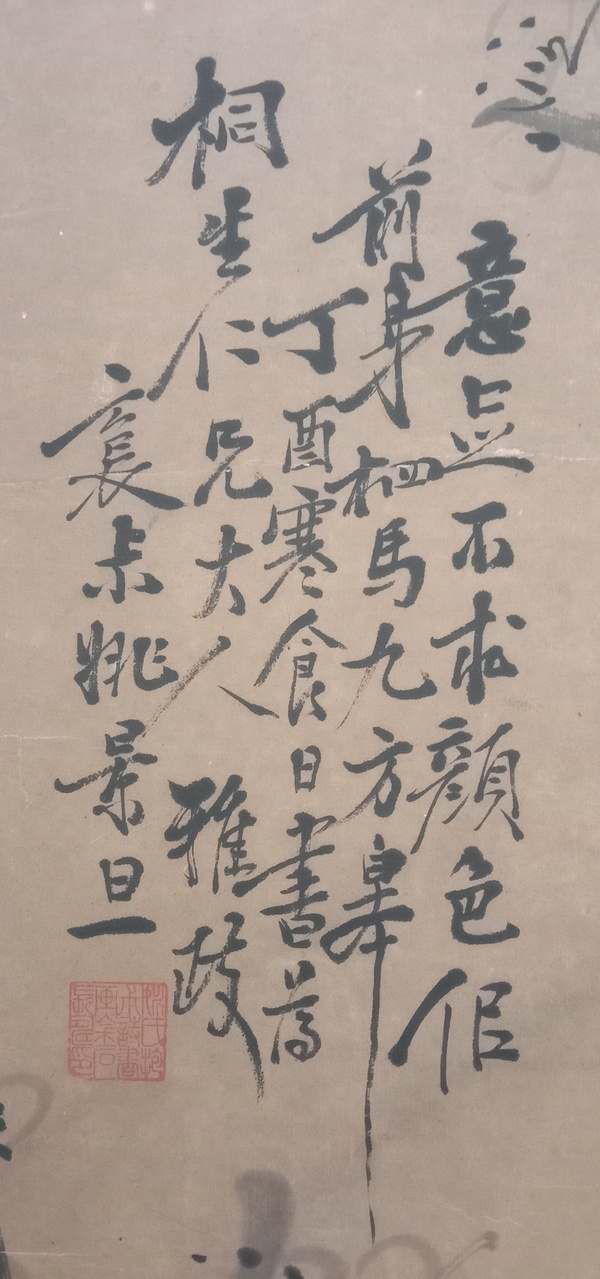 意足不求顏色佀
前身相馬九方皋
丁酉寒食日書為
桐生仁兄大人雅政
姚景旦